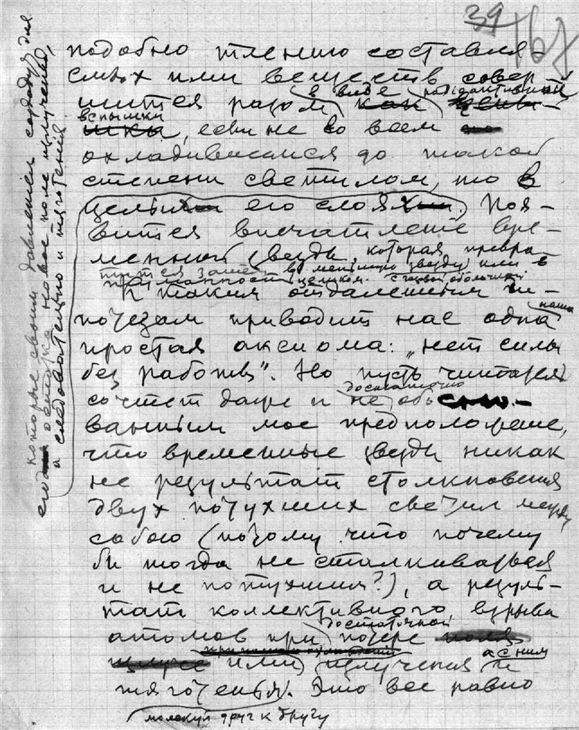 39
167
подобно тлению составля-
емых ими веществ совер-
шится разом в виде радиоактивной
вспышки, если не во всем
охладившемся до такой
степени светилом, то в
целых его слоях, поя-
вится впечатление вре-
менной звезды, которая превра-
тится затем в меньшую звезду или в
туманность целиком с газовой оболочкой
К таким отдаленным ги-
потезам приводит нас одна наша
простая аксиома: „нет силы
без работы". Но пусть читатель
сочтет даже и недостаточно обосно-
ванным мое предположение,
что временные звезды никак
не результат столкновения
двух потухших светил между
собою (потому что почему
бы тогда не сталкиваться
и не потухшим?), а резуль-
тат коллективного взрыва
атомов при достаточной потере
излучения и а с ним
тяготенья. Это все равно
молекул друг к другу
которые своим давлением
и следовательно и тяготения